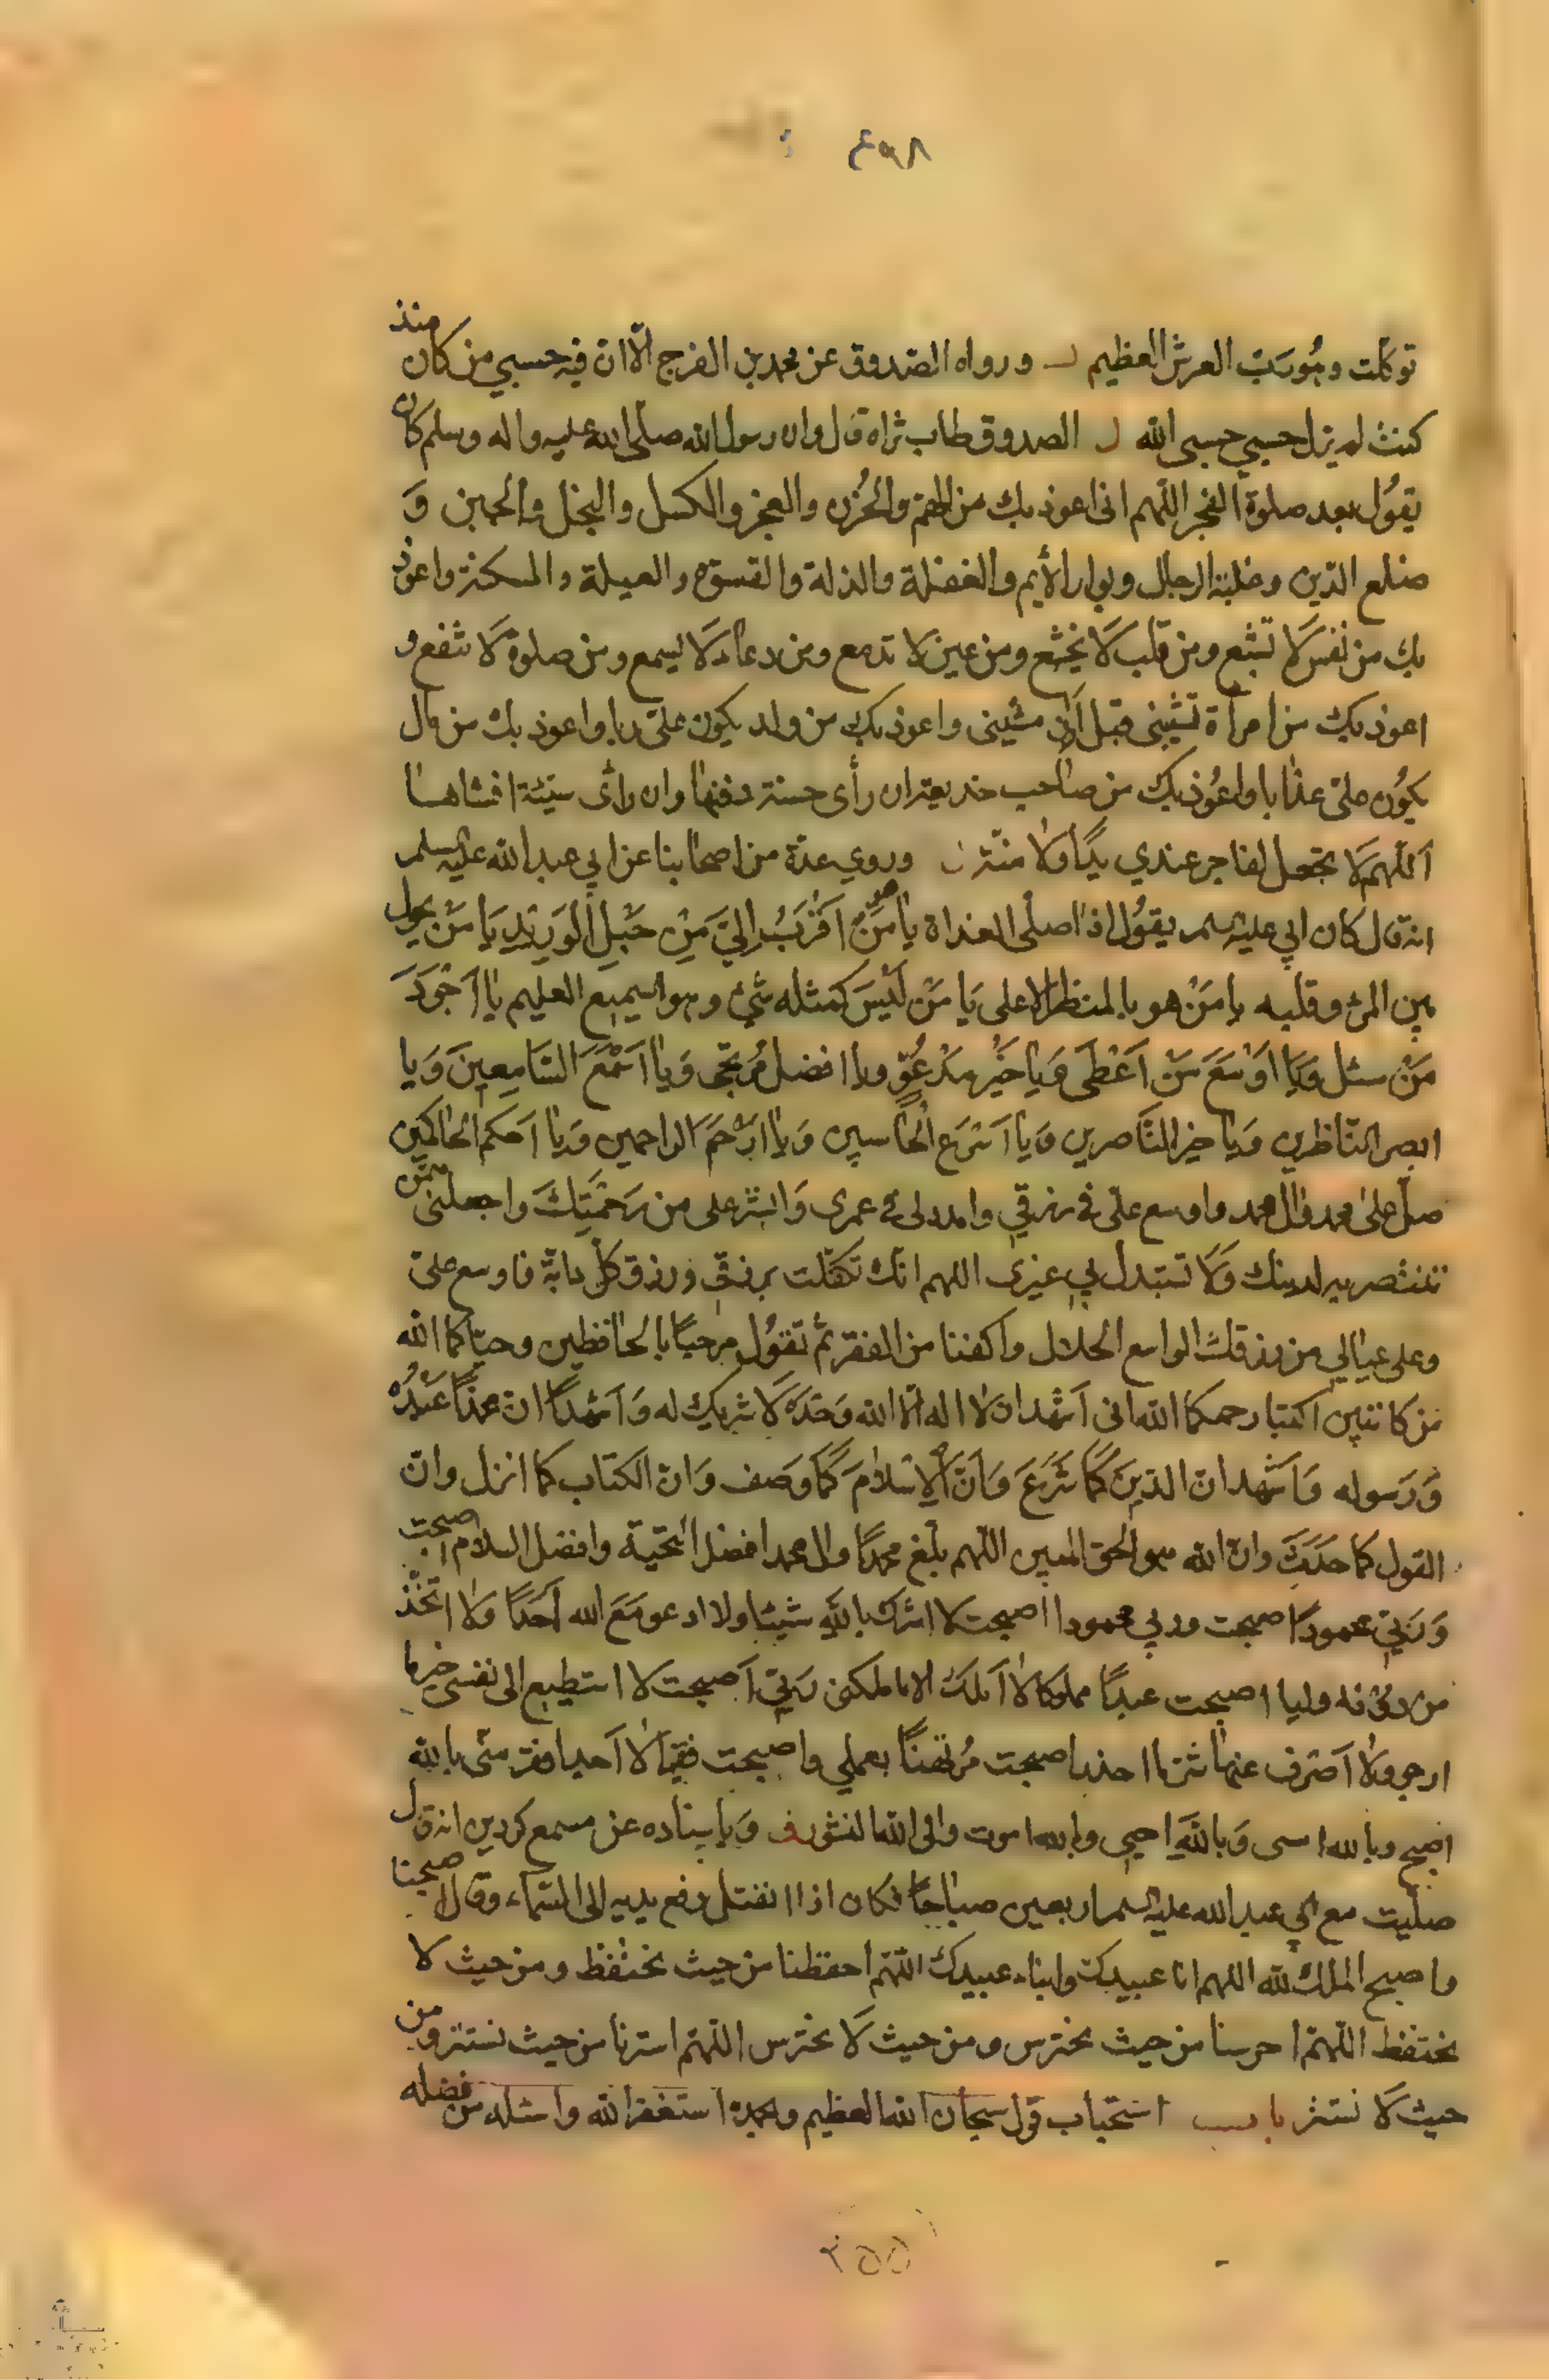 ٤٩٨
توكلت وهو رب العرش العظيم ورواه الصدوق عن محمد بن الفرج الّا ان فيه حسبي من كان منذ
كنت لم يزل حسبي حسبى الله الصدوق طاب ثراه قال وان رسول الله صلى الله عليه واله وسلم كان
يقول بعد صلوة الفجر اللهم انى اعوذ بك من الهم والحُزن والعجز والكسل والبخل والجبن وَ
ضلع الدين وغلبة الرجال وبوار الأيم والغفلة والذلة والقسوة والعيلة والمسكنة واعوذ
بك من نفس لَا تشبع ومن قلب لَا يخشع ومن عين لا تدمع ومن دعاء لَا يسمع ومن صلوة لَا تنفع و
اعوذ بك من امرأة تشيبنى قبل أوان مشيبى واعوذ بك من ولد يكون علىّ ربا واعوذ بك من مال
يكُون علىّ عذابا واعُوذ بك من صاحب خديعة ان رأى حسنة دفنها وان رأى سيئة افشاها
اَللّهم لَا تجعل لفاجر عندي يدًا ولا منّة وروي عدة من اصحابنا عن ابي عبد الله عليه السلم
انه قال كان ابي عليه السلم يقُول اذا صلى الغداة يا مَنْ هو اَقْرَبُ اِلَيَّ مِنْ حَبْلِ الْوَرِيْدِ يَا مَنْ يحول
بين المرء وقلبه يا مَنْ هو بالمنظر الاعلى يَا مَنْ لَيْسَ كمثله شيء وهو السميع العليم يا اَجْوَدَ
مَنْ سئل وَيا اَوْسَعَ مَنْ اَعْطَى وَيا خَيْر مَدْعُوّ ويا افضل مُرتجى وَيا اَسْمَعَ السَّامِعِينَ وَيا
ابصر النّاظرين وَيا خير النَّاصرين وَيا اَسْرَع الْحاسبين وَيا اَرْحَمَ الراحمين وَيا احكم الحاكمين
صلّ على محمد وال محمد واوسع علىّ في رزقي وامدد لى في عمرى وَانشر على من رَحْمَتِكَ واجعلنى ممّن
تنتصر به لدينك وَلَا تستبدل بي غيرى اللهم انك تكفّلت برزقى ورزق كلّ دابّة فاوسع علىّ
وعلى عيالي من رزقك الواسع الحلال واكفنا من الفقر ثمّ تقوُل مرحبًا بالحافظين وحيّاكما الله
من كاتبين اكتبا رحمكما الله انى اَشهد ان لا اله الّا الله وَحْدَه لَا شريك له وَاَشْهد ان محمدًا عَبْدُه
وَرَسوله وَاَشهد ان الدّينَ كَما شَرَعَ وَاَنَّ الْاِسْلَامَ كَما وَصَف وَان الكتاب كما انزل وان
القول كما حَدَّثَ وان الله هو الحق المبين اللّهم بلّغ محمدًا وال محمد افضل التحيّة وافضل السلام اصبحت
وَرَبّي محمودًا اصبحت وربي محمودا اصبحت لا اشرك باللهِ شيئا ولا ادعو مَعَ الله اَحَدًا وَلا اتّخذ
من دُونه وليا اصبحت عبدًا مملوكا لا اَملك الا ما ملكنى رَبّي اَصبحت لا استطيع الى نفسى خير ما
ارجو ولا اَصْرف عنها شر ما احذر اصبحت مُرتهنًا بعملي واصبحت فقيرًا لا اَجد افقر منّى بالله
اصبح وبالله امسى وَباللهِ احيى وبالله اموت والى الله النشور وَباسناده عن مسمع كردين انه قال
صلّيت مع ابي عبد الله عليه السلم اربعين صباحًا فكان اذا انفتل رفع يديه الى السّماء وقال اصبحنا
واصبح الملك لله اللهم انا عبيدك وابناء عبيدك اللّهم احفظنا من حيث نحتفظ ومن حيث لا
نحتفظ اللّهمّ احرسنا من حيث نحترس ومن حيث لَا نحترس اللّهمّ استرنا من حيث نستتر ومن
حيث لَا نستتر باب استحباب قول سبحان الله العظيم وبحمده استغفر الله واسئله من فضله